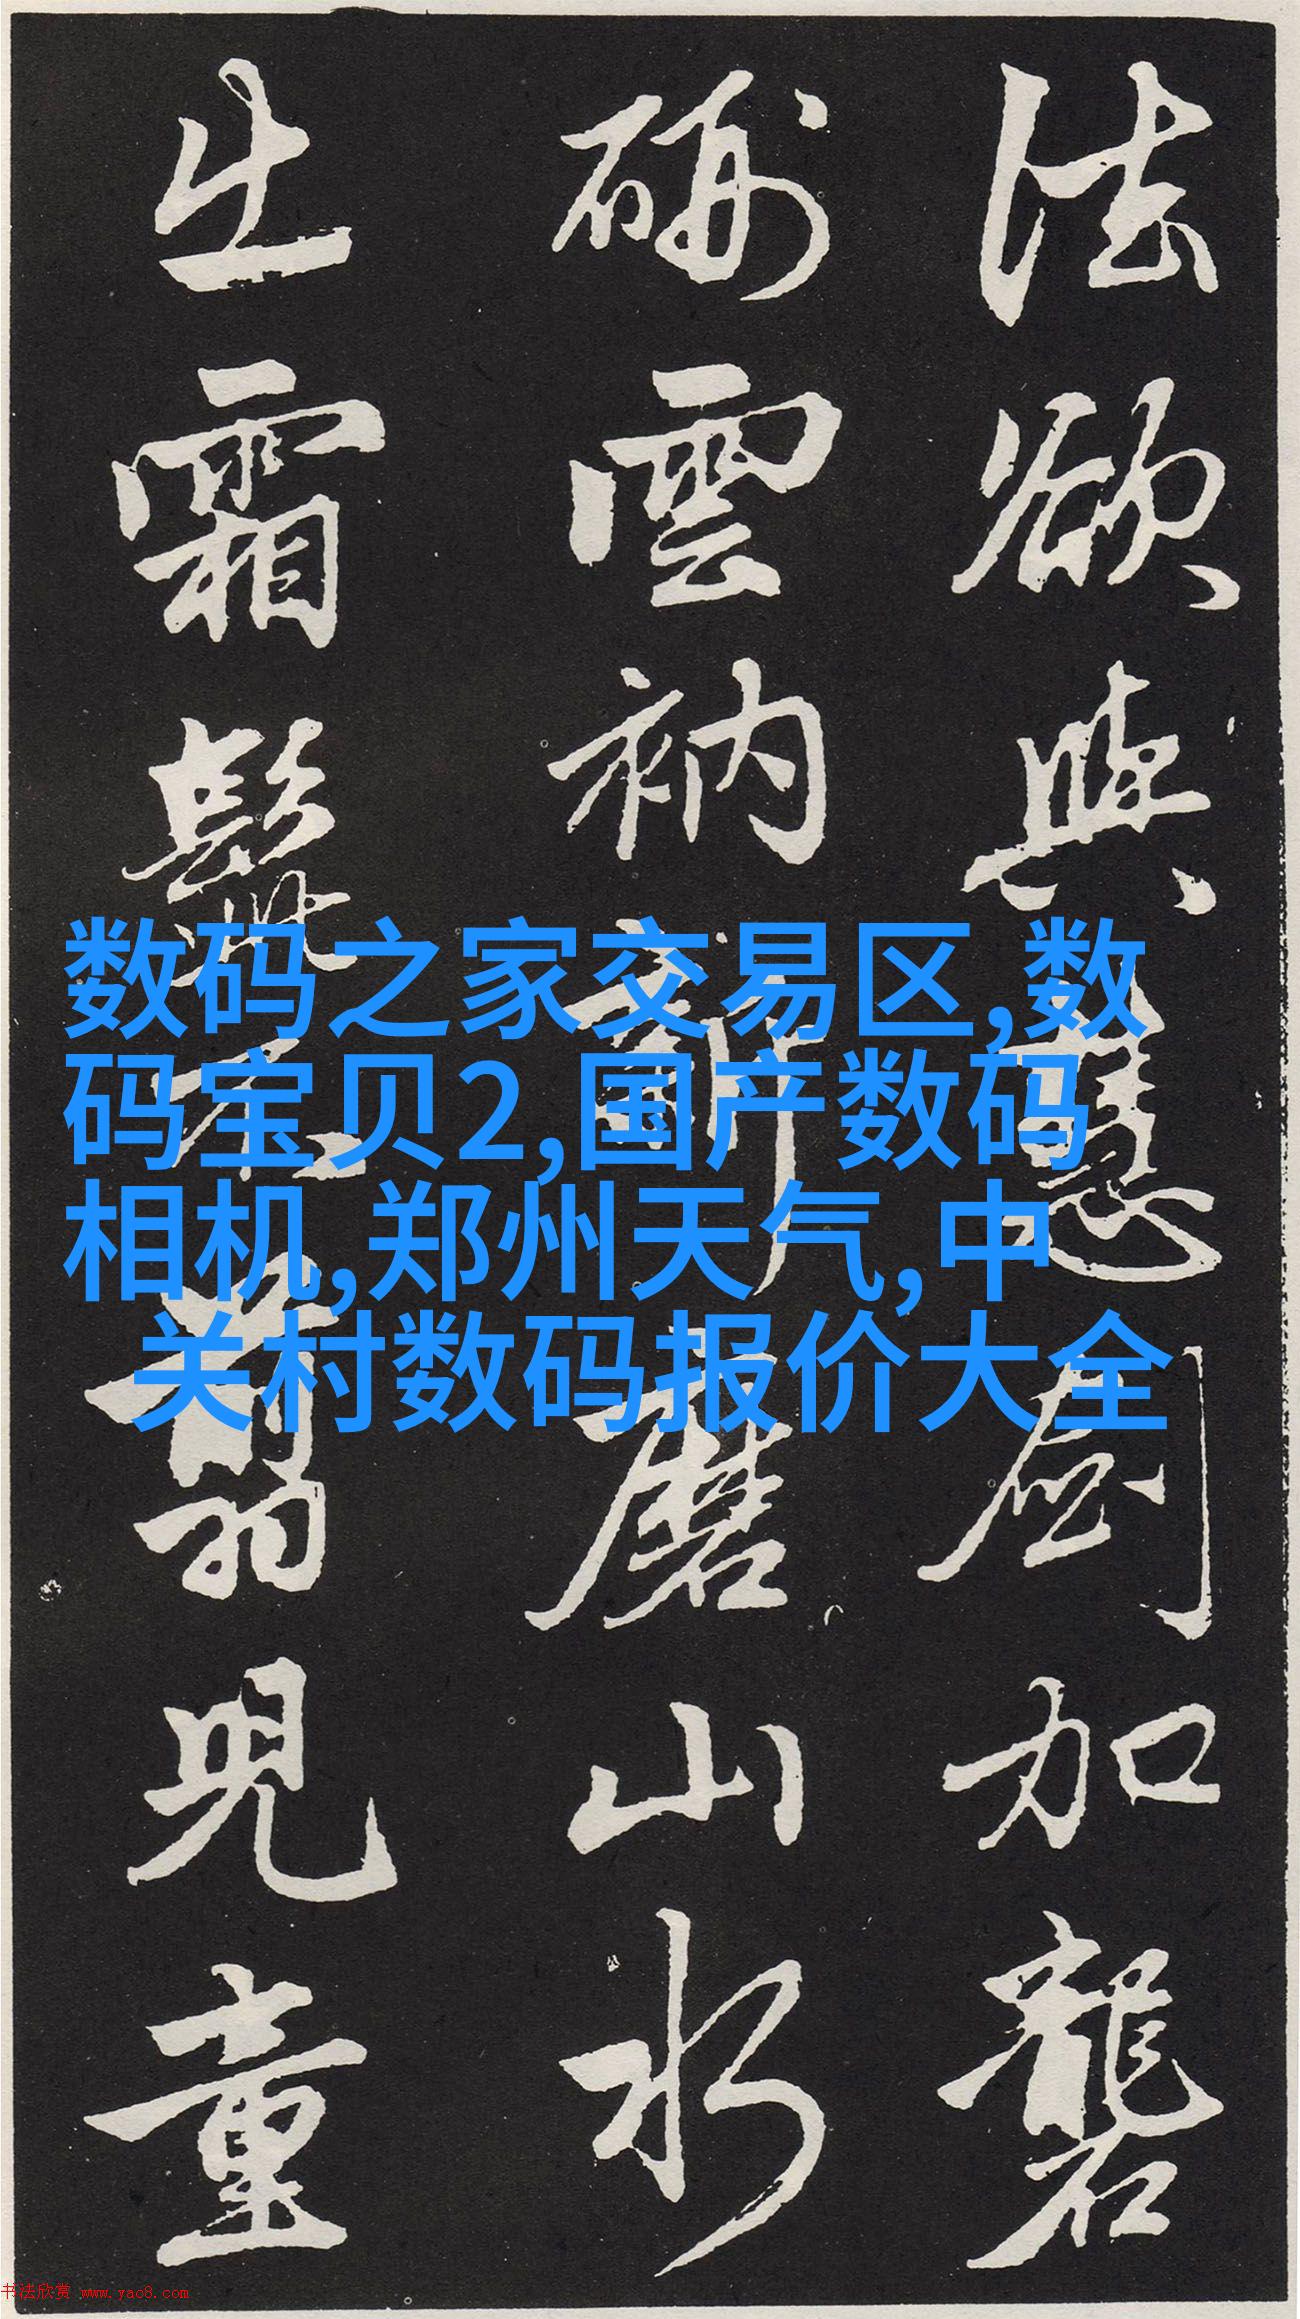 法欲與慧劍加礱
硎雲衲新磨山水
出霜髭不翦兒童
数码之家交易区,数
码宝贝2,国产数码
相机,郑州天气,中
关村数码报价大全
书法欣赏 www.yac8.com